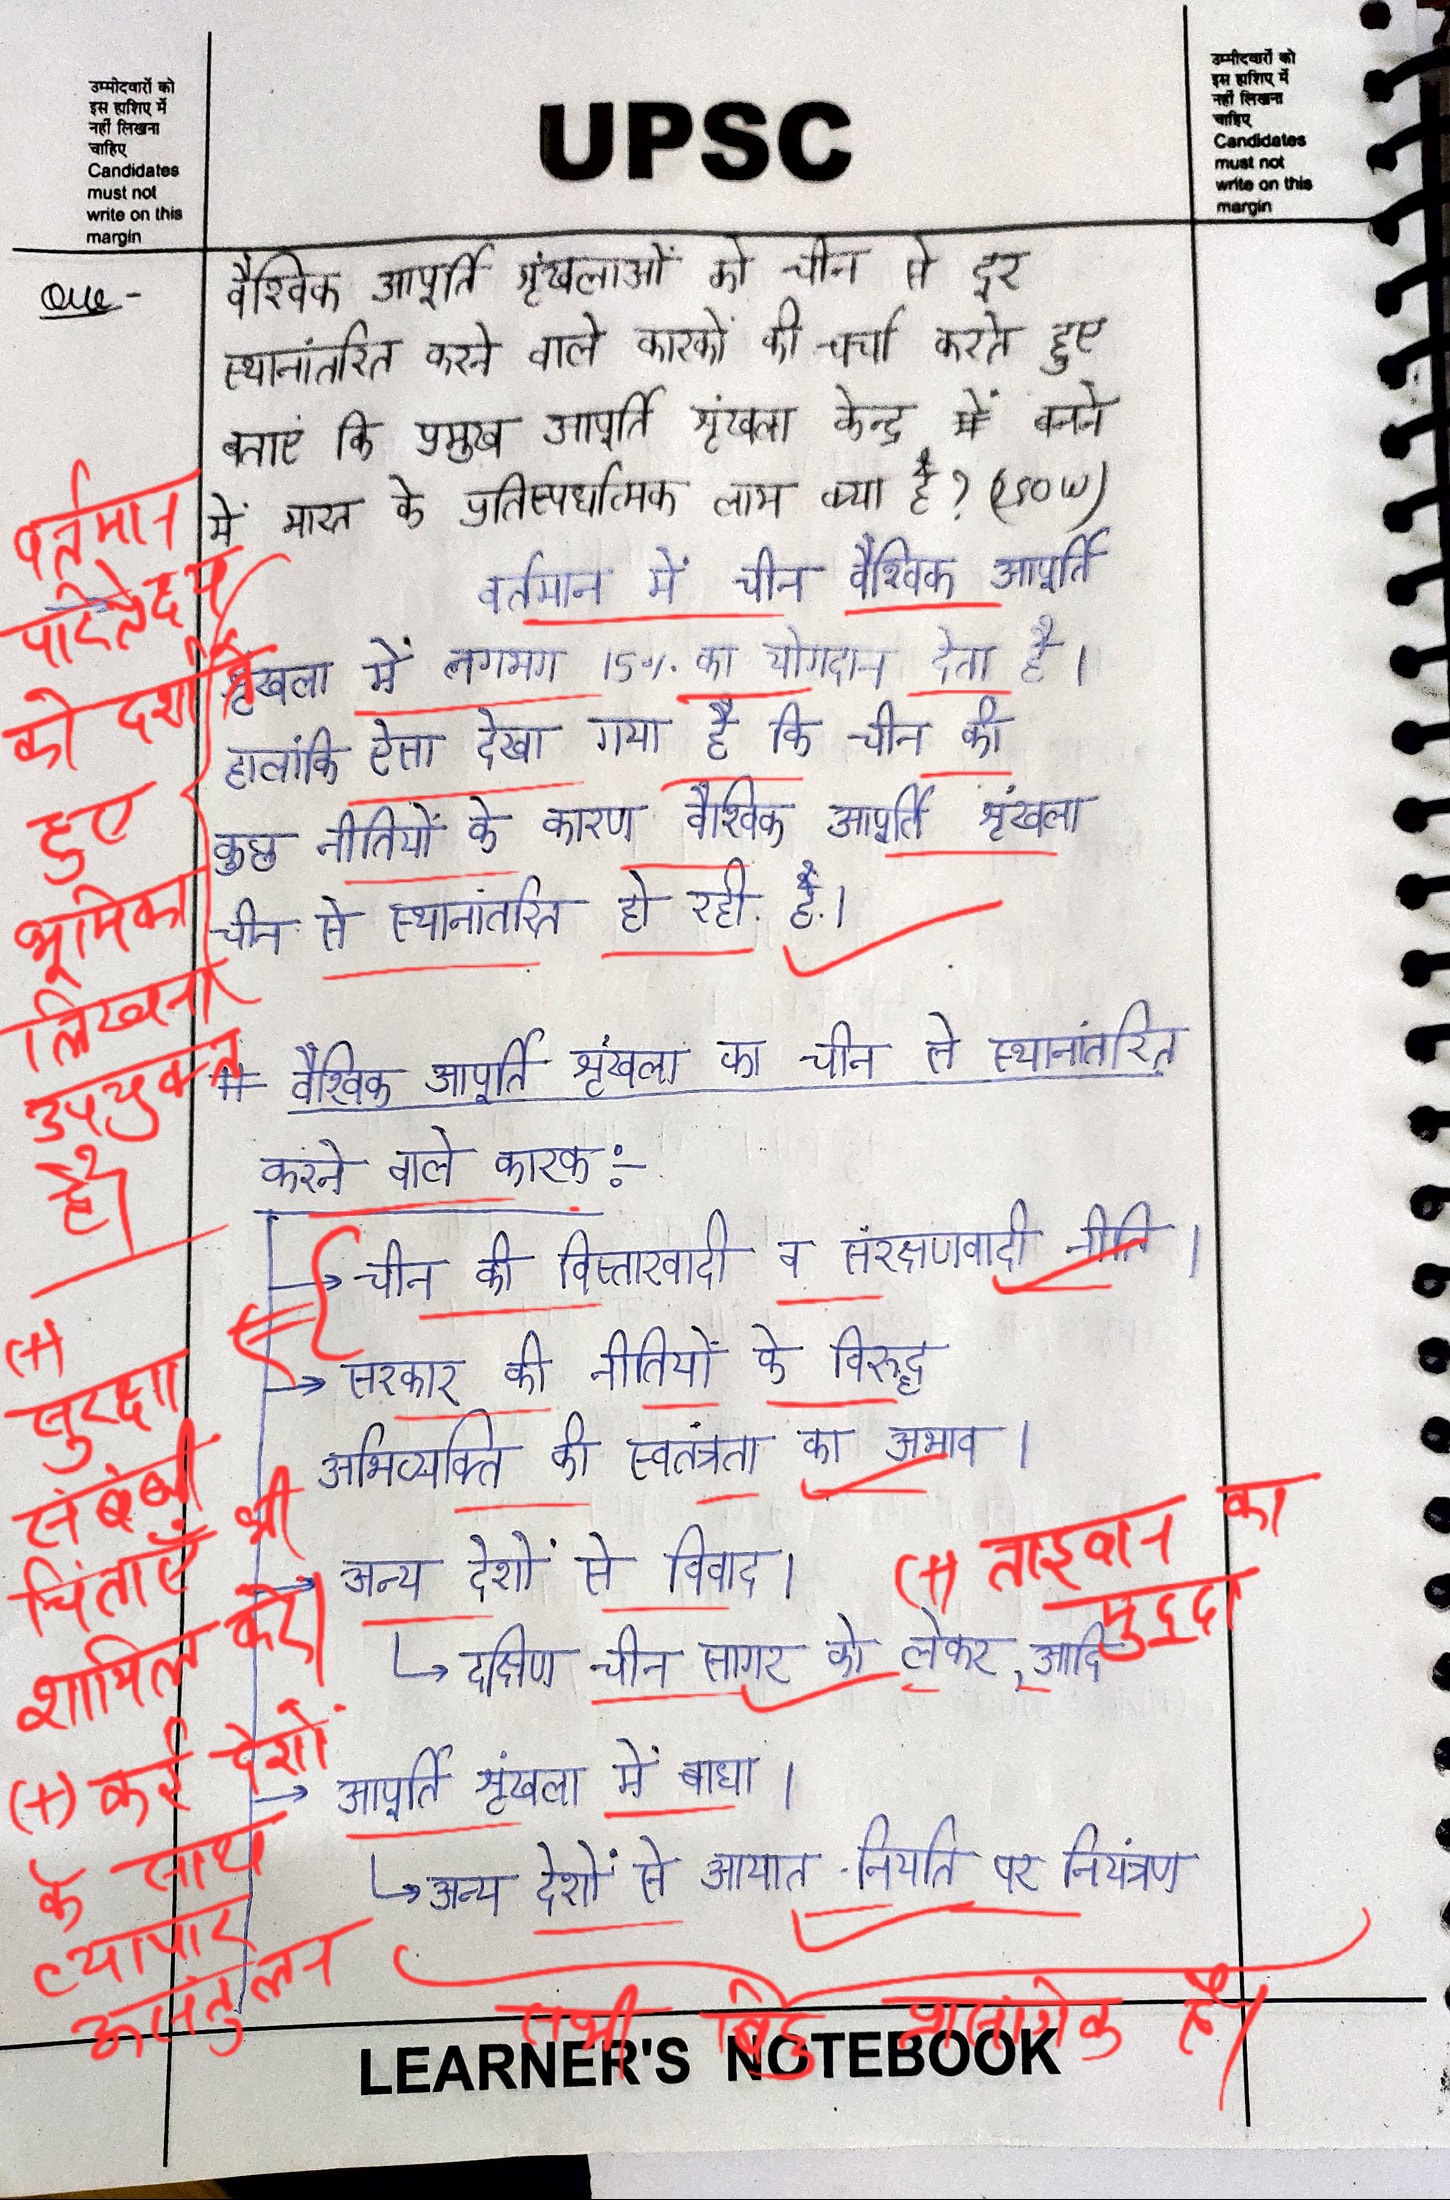 उम्मीदवारों को
इस हाशिए में
नहीं लिखना
चाहिए
Candidates
must not
write on this
margin
UPSC
उम्मीदवारों को
इस हाशिए में
नहीं लिखना
चाहिए
Candidates
must not
write on this
margin
Que -
वैश्विक आपूर्ति श्रृंखलाओं को चीन से दूर
स्थानांतरित करने वाले कारकों की चर्चा करते हुए
बताएं कि प्रमुख आपूर्ति श्रृंखला केन्द्र में बनने
में भारत के प्रतिस्पर्धात्मक लाभ क्या है? (250 W)
वर्तमान में चीन वैश्विक आपूर्ति
श्रृंखला में लगभग 15% का योगदान देता है।
हालांकि ऐसा देखा गया है कि चीन की
कुछ नीतियों के कारण वैश्विक आपूर्ति श्रृंखला
चीन से स्थानांतरित हो रही है।
वर्तमान
परिप्रेक्ष्य
को दर्शाते
हुए
भूमिका
लिखना
उपयुक्त
है।
# वैश्विक आपूर्ति श्रृंखला का चीन से स्थानांतरित
करने वाले कारक :-
→ चीन की विस्तारवादी व संरक्षणवादी नीति।
→ सरकार की नीतियों के विरुद्ध
अभिव्यक्ति की स्वतंत्रता का अभाव।
→ अन्य देशों से विवाद।
↳ दक्षिण चीन सागर को लेकर, आदि
(+) ताइवान का
मुद्दा
→ आपूर्ति श्रृंखला में बाधा।
↳ अन्य देशों से आयात-निर्यात पर नियंत्रण
(+)
सुरक्षा
संबंधी
चिंताएँ भी
शामिल करें।
(+) कई देशों
के साथ
व्यापार
असंतुलन
सभी बिंदु प्रासंगिक है।
LEARNER'S NOTEBOOK